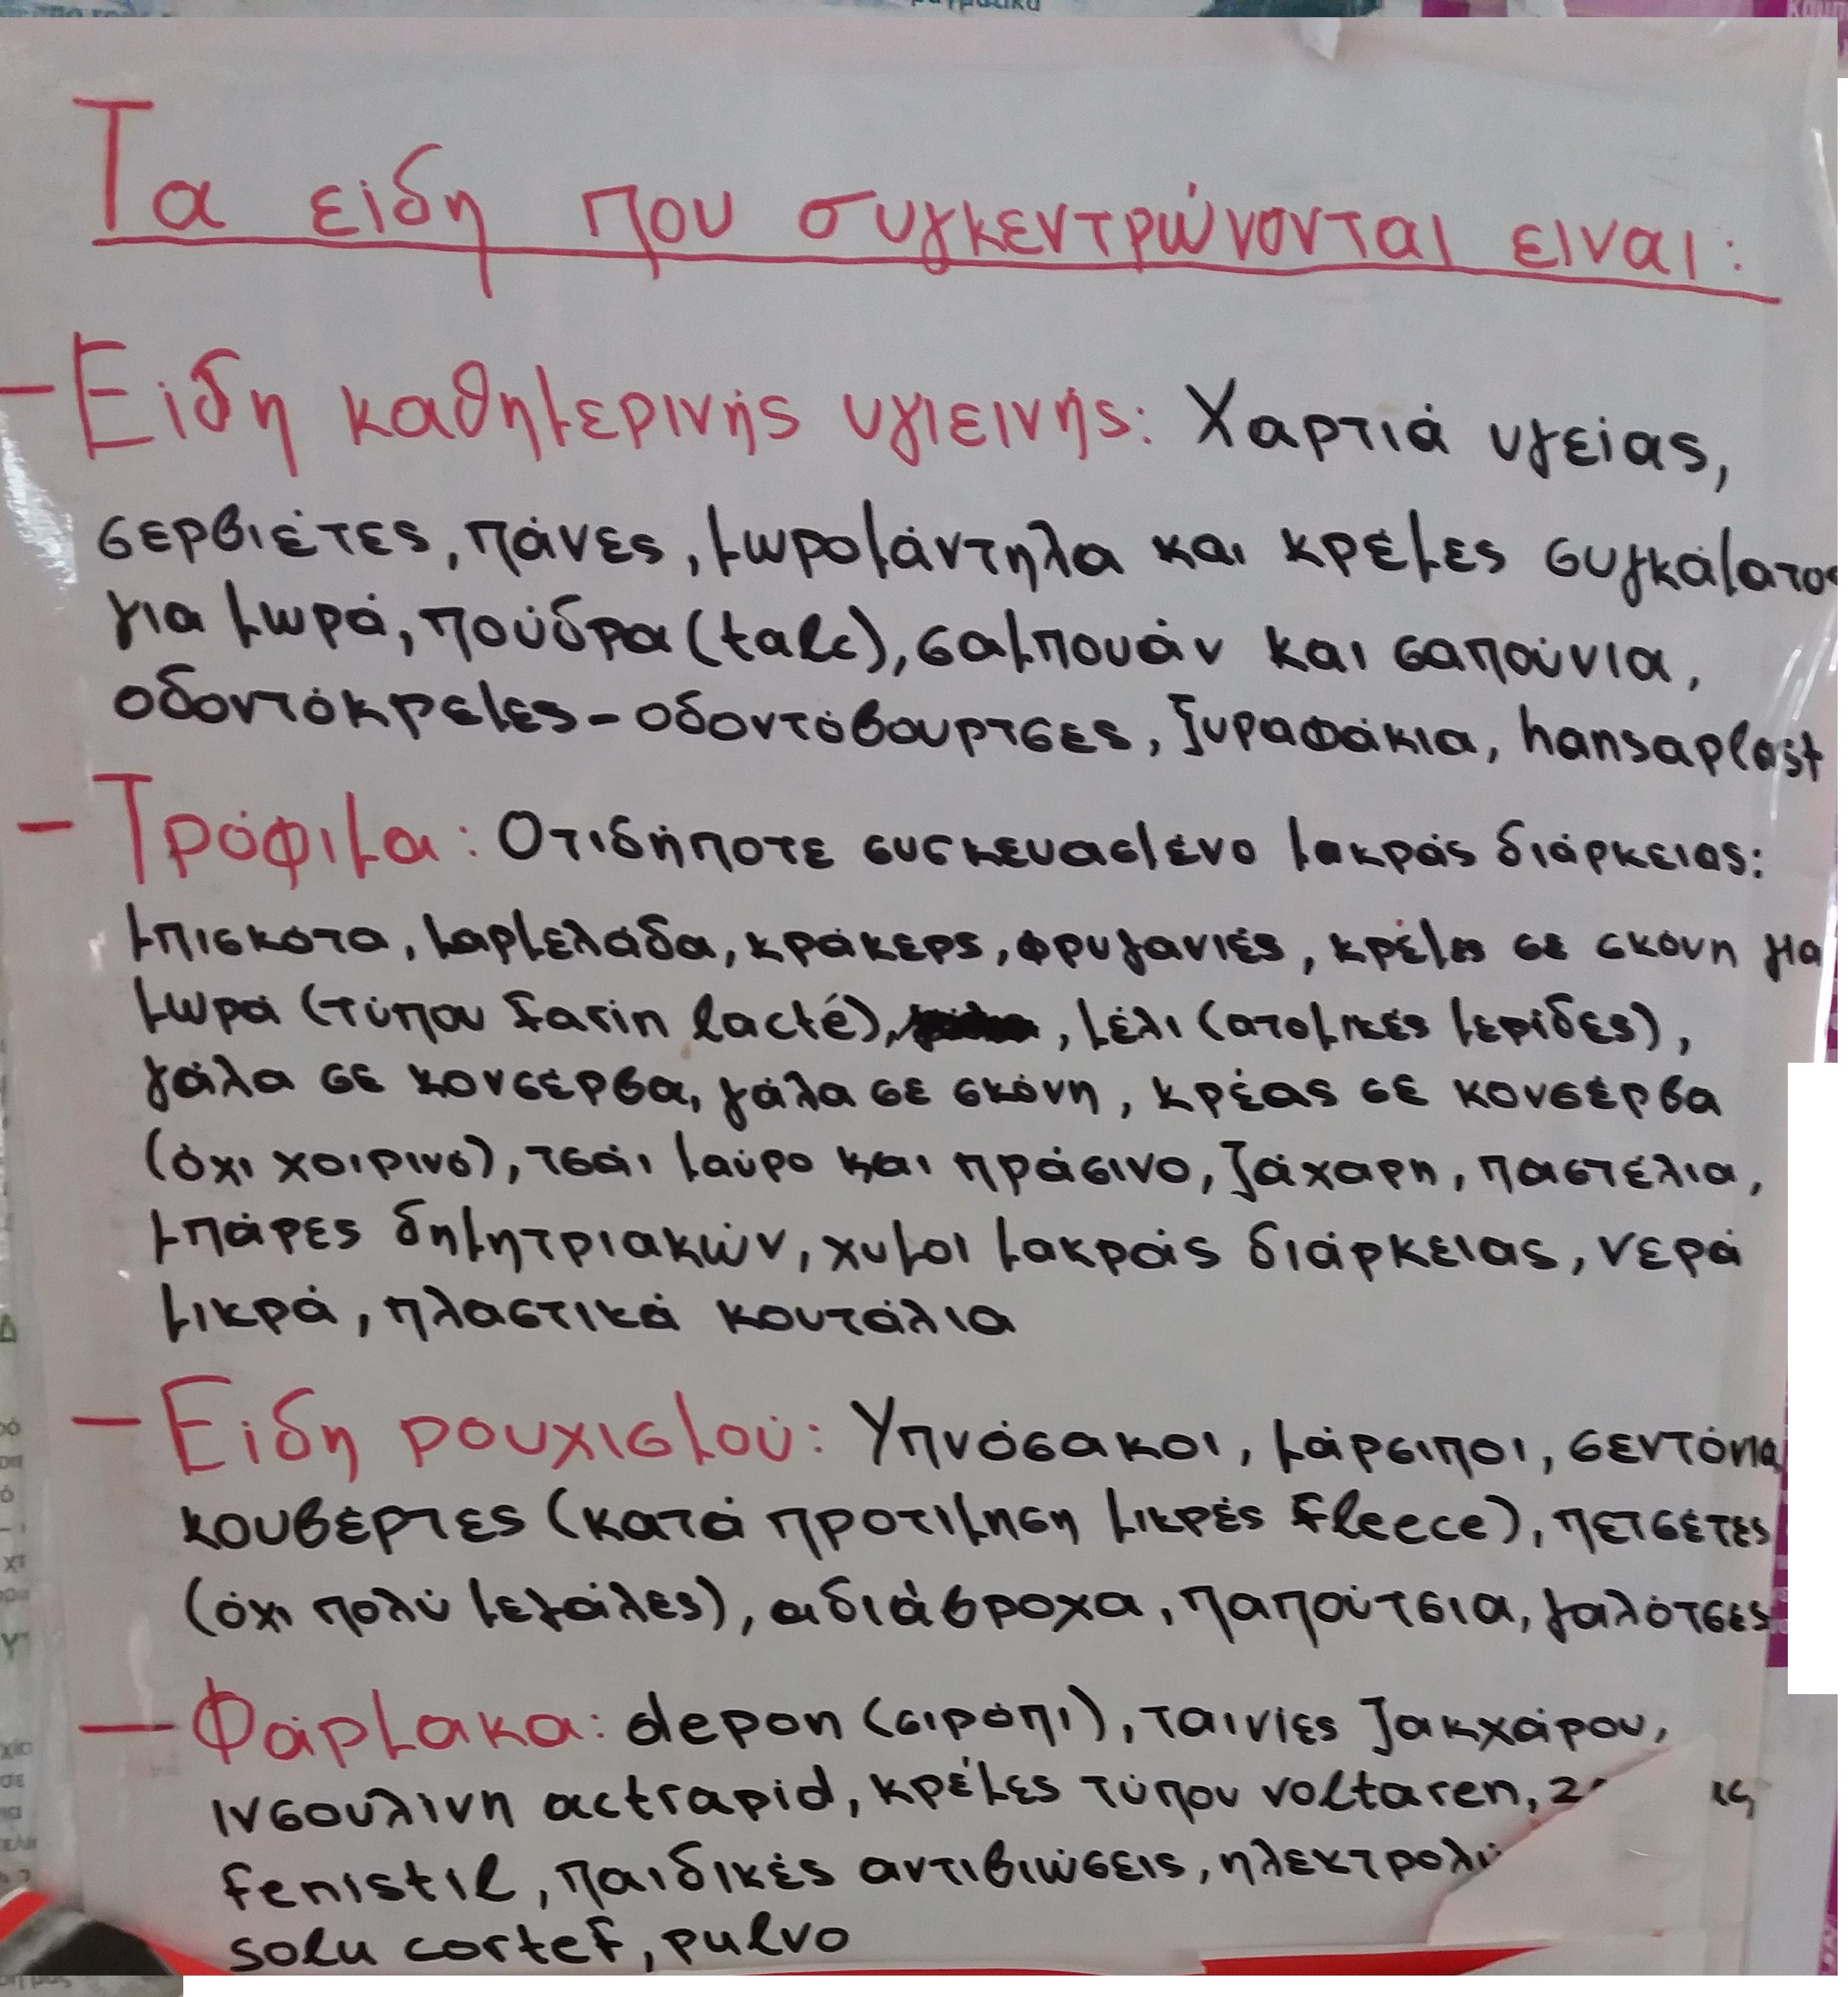 Τα είδη που συγκεντρώνονται ειναι:
- Είδη καθημερινής υγιεινής: Χαρτιά υγείας,
σερβιέτες, πάνες, μωρομάντηλα και κρέμες συγκάματος
για μωρά, πούδρα (talc), σαμπουάν και σαπούνια,
οδοντόκρεμες - οδοντόβουρτσες, ξυραφάκια, hansaplast
- Τρόφιμα: Οτιδήποτε συσκευασμένο μακράς διάρκειας:
μπισκότα, μαρμελάδα, κράκερς, φρυγανιές, κρέμα σε σκόνη για
μωρά (τύπου farin lacté), , μέλι (ατομικές μερίδες),
γάλα σε κονσέρβα, γάλα σε σκόνη, κρέας σε κονσέρβα
(όχι χοιρινό), τσάι μαύρο και πράσινο, ζάχαρη, παστέλια,
μπάρες δημητριακών, χυμοι μακράς διάρκειας, νερά
μικρά, πλαστικά κουτάλια
- Είδη ρουχισμού: Υπνόσακοι, μάρσιποι, σεντόνια
κουβέρτες (κατά προτίμηση μικρές fleece), πετσέτες
(όχι πολύ μεγάλες), αδιάβροχα, παπούτσια, γαλότσες
- Φάρμακα: depon (σιρόπι), ταινίες ζακχάρου,
ινσουλινη actrapid, κρέμες τύπου voltaren,
fenistil, παιδικές αντιβιώσεις,
solu cortef, pulvo